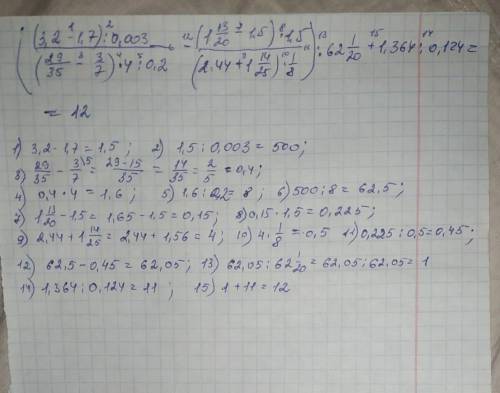 ( (3,2 - 1,7) : 0,003 / (29/35 - 3/7) · 4 : 0,2 - (1 13/20 - 1,5) · 1,5 / (2,44 + 1 14/25) · 1/8 ) : 62 1/20 + 1,364 : 0,124 =
= 12
1) 3,2 - 1,7 = 1,5 ; 2) 1,5 : 0,003 = 500;
3) 29/35 - 3/7 \5 = 29-15/35 = 14/35 = 2/5 = 0,4;
4) 0,4 · 4 = 1,6 ; 5) 1,6 : 0,2 = 8 ; 6) 500 : 8 = 62,5 ;
7) 1 13/20 - 1,5 = 1,65 - 1,5 = 0,15; 8) 0,15 · 1,5 = 0,225;
9) 2,44 + 1 14/25 = 2,44 + 1,56 = 4; 10) 4 · 1/8 = 0,5 11) 0,225 : 0,5 = 0,45;
12) 62,5 - 0,45 = 62,05; 13) 62,05 : 62 1/20 = 62,05 : 62,05 = 1
14) 1,364 : 0,124 = 11 ; 15) 1 + 11 = 12